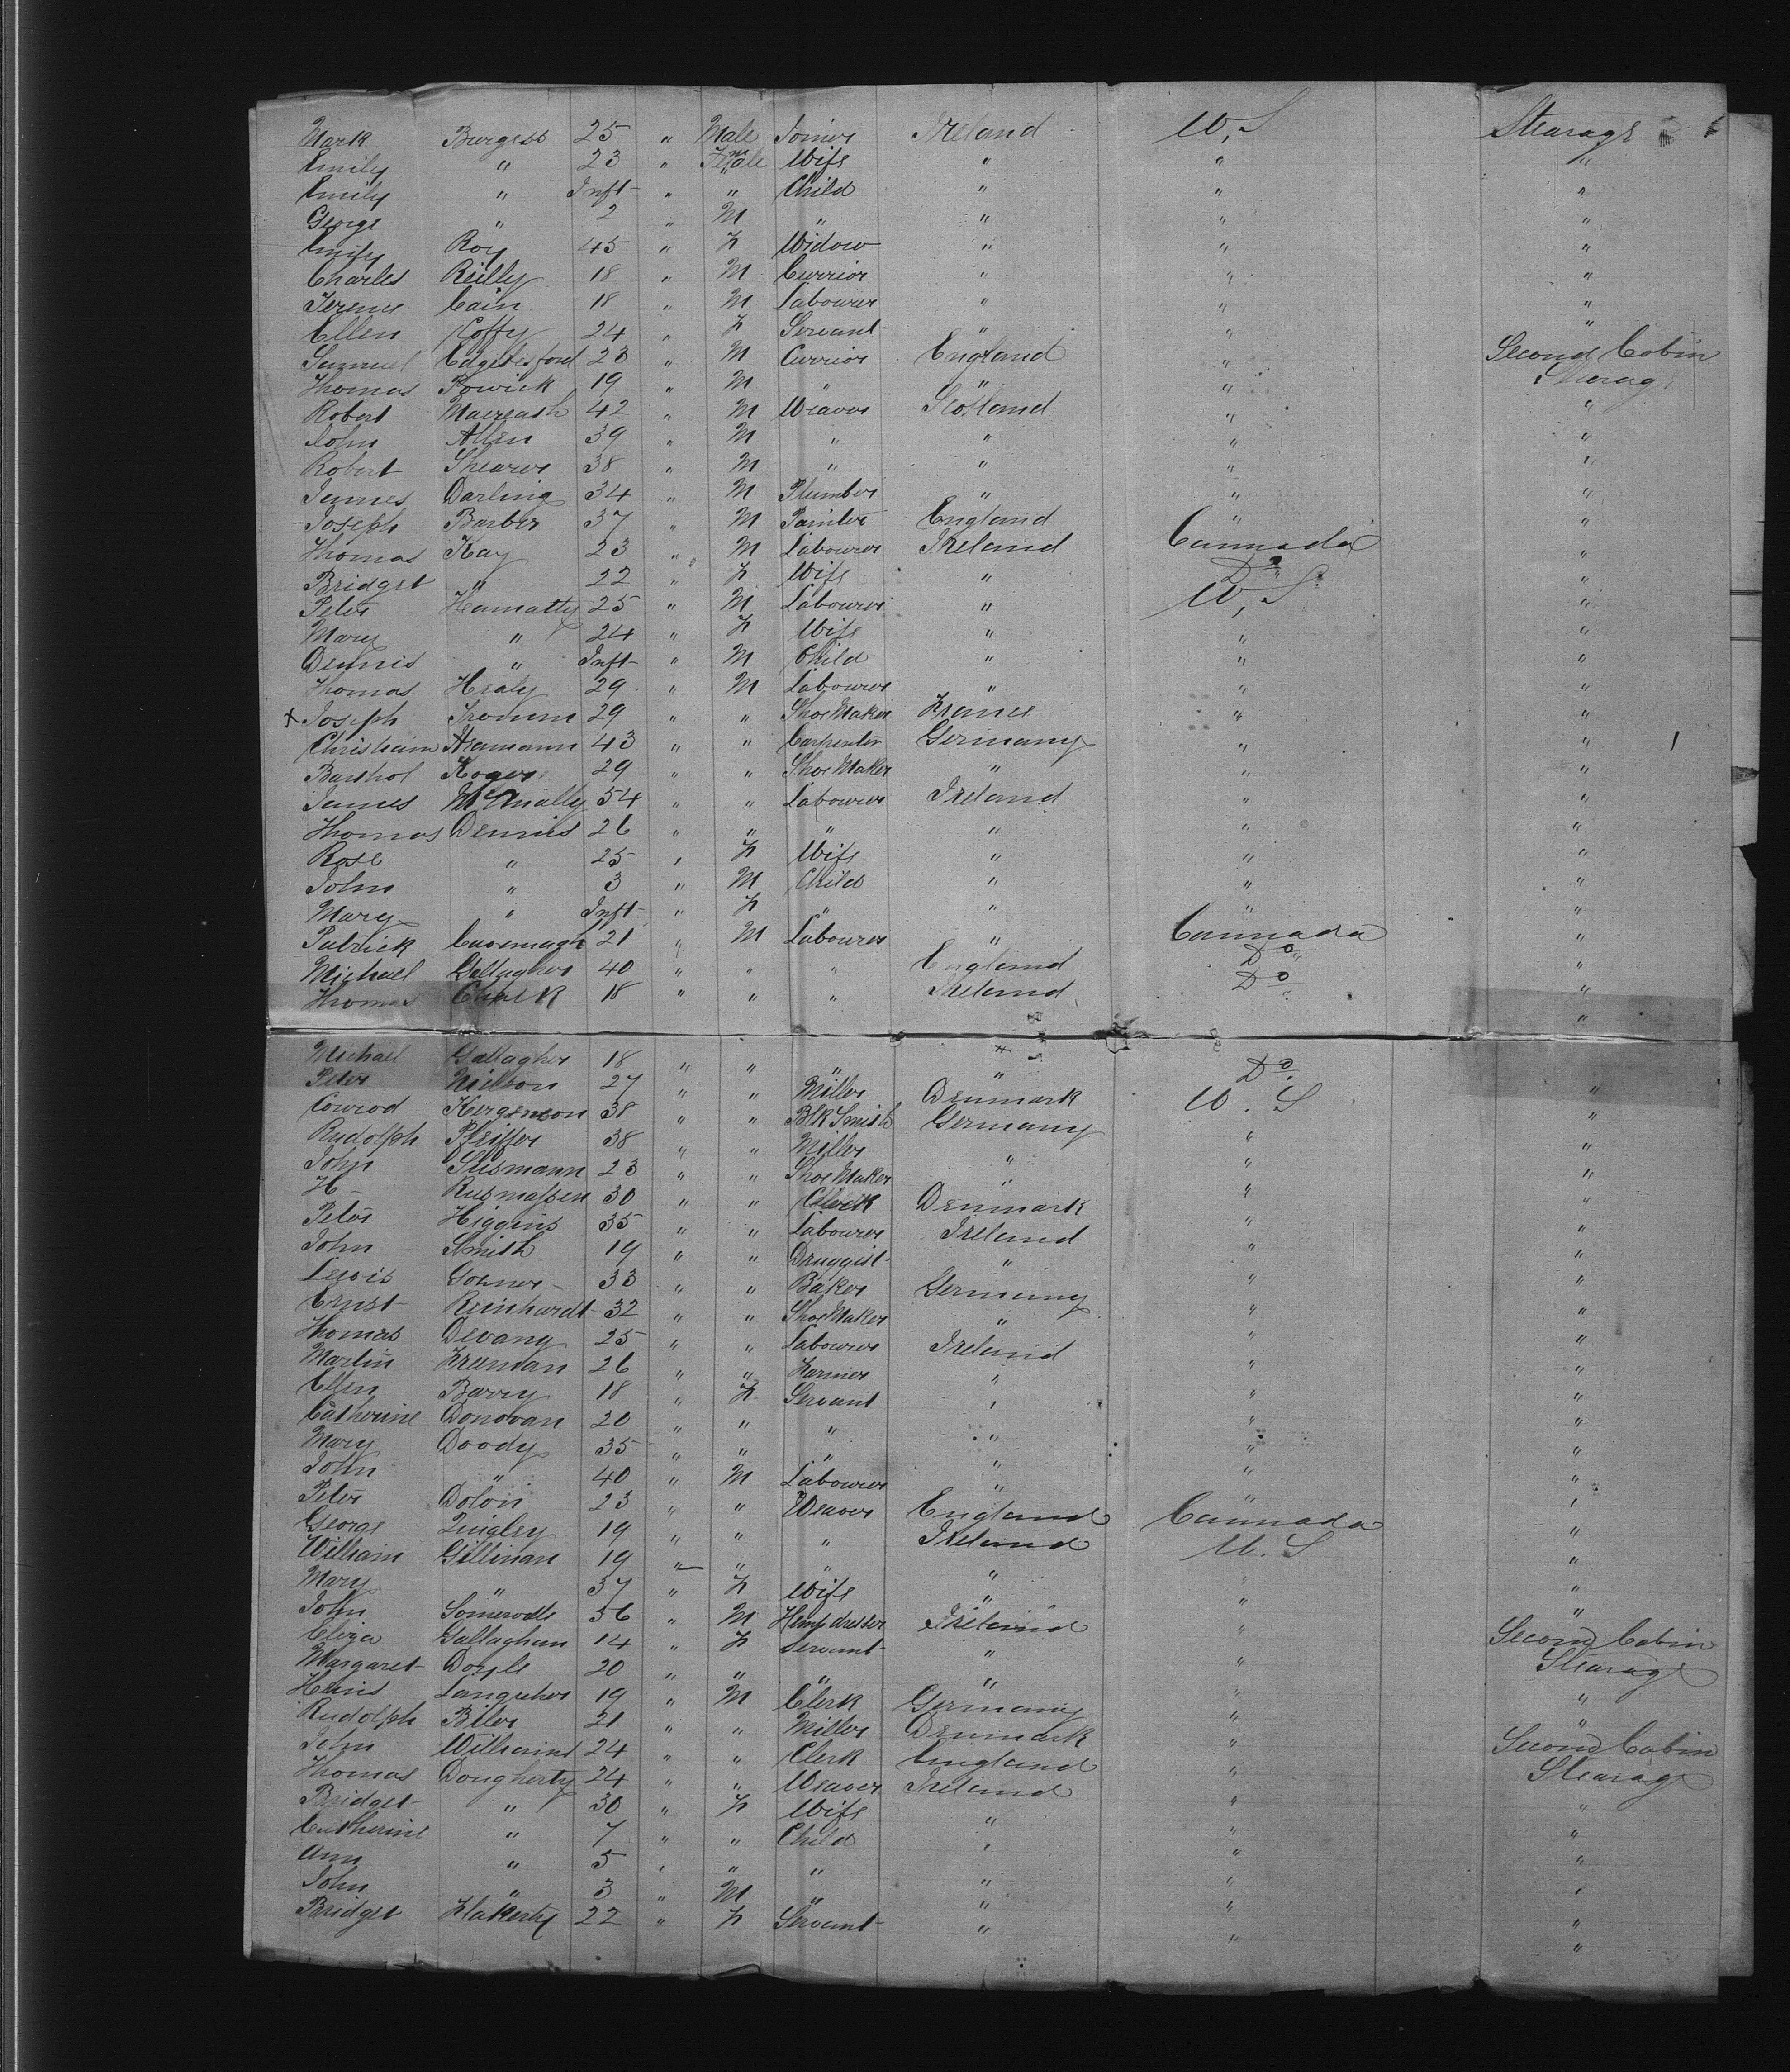 Mark Burgess 25 " Male Joiner Ireland U,S Stearage
Emily " 23 " Female Wife " " "
Emily " Inft " " Child " " "
George " 2 " M " " " "
Emily Roy 45 " F Widow " " "
Charles Reilly 18 " M Currior " " "
Terence Cain 18 " M Labourer " " "
Ellen Coffy 24 " F Servant " " "
Samuel 23 " M Currior England " Second Cabin
Thomas Powick 19 " M " " " Stearage
Robert 42 " M Weaver Scotland " "
John Allen 39 " M " " " "
Robert Shearer 38 " M " " " "
James Darling 34 " M Plumber " " "
Joseph Barber 37 " M Painter England " "
Thomas Kay 23 " M Labourer Ireland Cannada "
Bridget " 22 " F Wife " Do "
Peter 25 " M Labourer " U,S "
Mary " 24 " F Wife " " "
Dennis " Inft " M Child " " "
Thomas Healy 29 " M Labourer " " "
x Joseph 29 " " Shoe Maker France " "
Christian 43 " " Carpenter Germany " "
Barthol 29 " " Shoe Maker " " "
James McAnally 54 " " Labourer Ireland " "
Thomas Dennis 26 " " " " " "
Rose " 25 " F Wife " " "
John " 3 " M Child " " "
Mary " Inft " F " " " "
Patrick Cavenagh 21 " M Labourer " Cannada "
Michael Gallagher 40 " " " England Do "
Thomas 18 " " " Ireland Do "
Michael Gallagher 18 " " " " Do "
Peter Nielson 27 " " Miller Denmark U.S "
Conrod 38 " " Blk Smith Germany " "
Rudolph Pfeiffer 38 " " Miller " " "
John 23 " " Shoe Maker " " "
H Rusmassen 30 " " Clerk Denmark " "
Peter Higgins 35 " " Labourer Ireland " "
John Smith 19 " " Druggist " " "
Lewis 33 " " Baker Germany " "
Ernst Reinhardt 32 " " Shoe Maker " " "
Thomas Devany 25 " " Labourer Ireland " "
Martin Freeman 26 " " Farmer " " "
Ellen Barry 18 " F Servant " " "
Catherine Donovan 20 " " " " " "
Mary Doody 35 " " " " " "
John " 40 " M Labourer " " "
Peter Dolon 23 " " Weaver England Cannada "
George Quigley 19 " " " Ireland U.S "
William Gillinan 19 " " " " " "
Mary " 37 " F Wife " " "
John 56 " M Hemp dresser Ireland " Second Cabin
Eliza Gallaghan 14 " F Servant " " Stearage
Margaret Doyle 20 " " " " " "
19 " M Clerk Germany " "
Rudolph Biler 21 " " Miller Denmark " Second Cabin
John 24 " " Clerk England " Stearage
Thomas Dougherty 24 " " Weaver Ireland " "
Bridget " 30 " F Wife " " "
Catherine " 7 " " Child " " "
Ann " 5 " " " " " "
John " 3 " M " " " "
Bridget Flaherty 22 " F Servant " " "